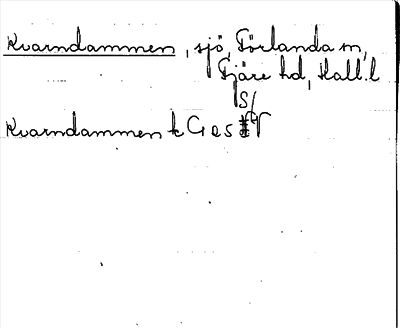 Kvarndammen, sjö, Förlanda sn,
Fjäre hd, Hall. l
Kvarndammen t G a s